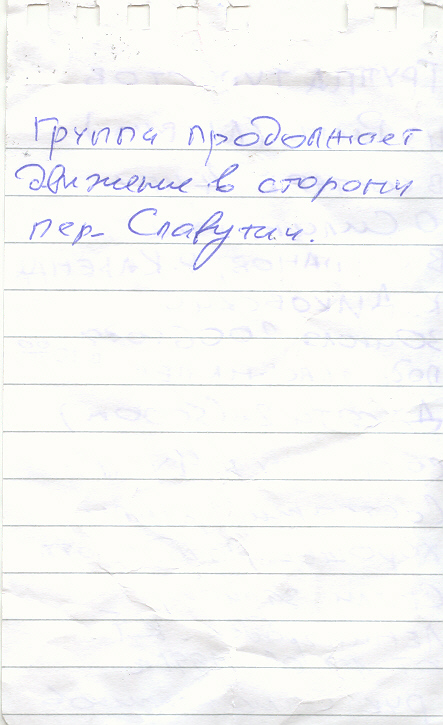 Группа продолжает
движение в сторону
пер. Славутич.